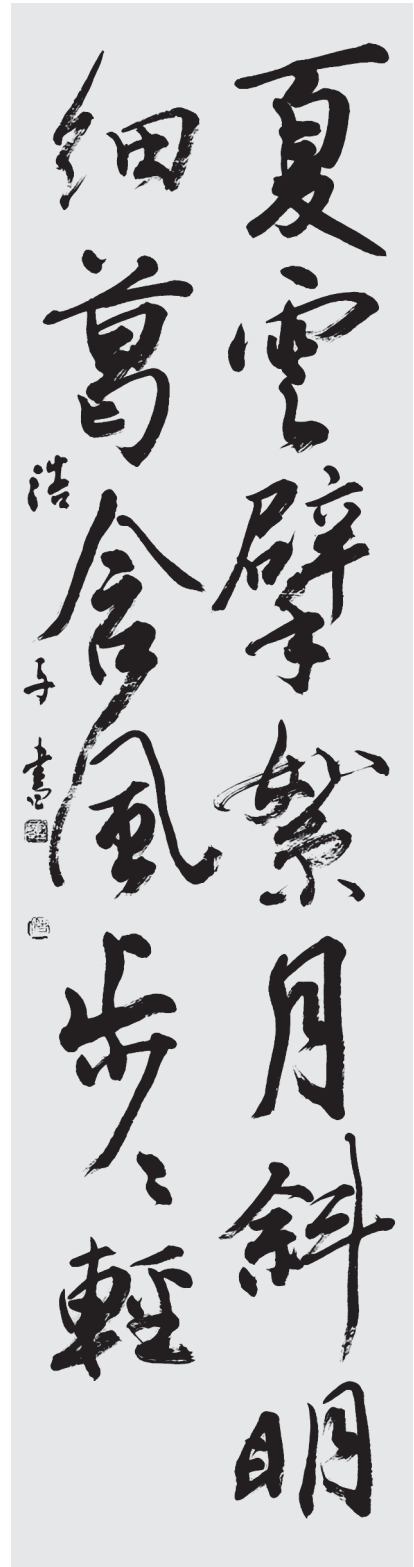 夏雲擘絮月斜明
細葛含風步々輕
浩子書